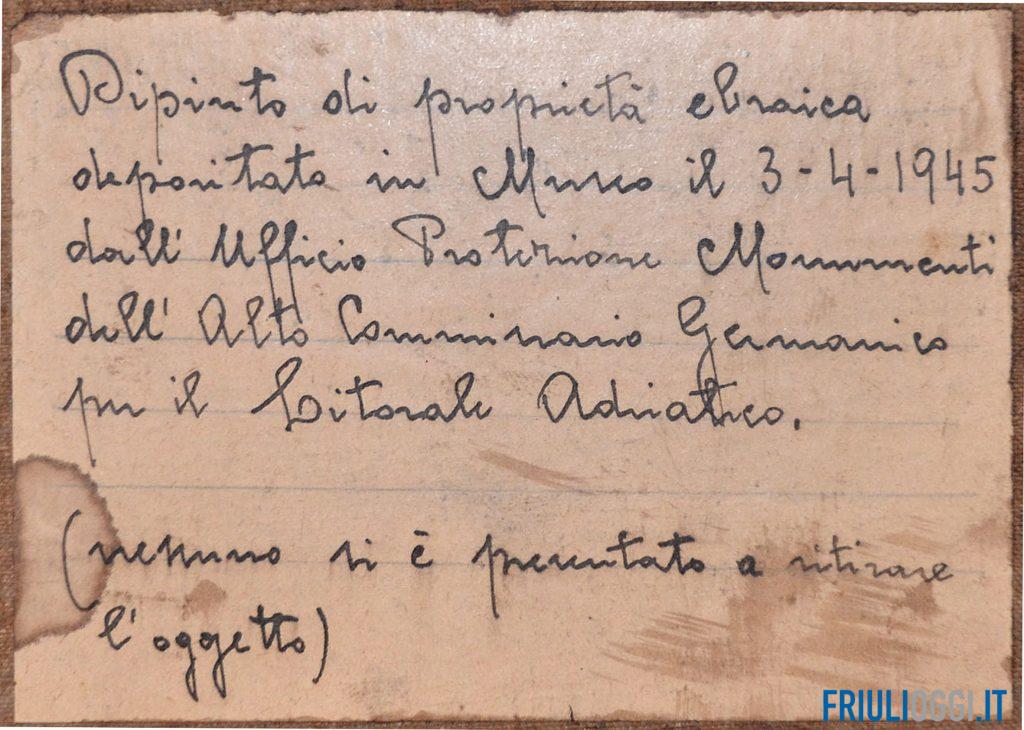 Dipinto di proprietà ebraica
depositato in Museo il 3-4-1945
dall' Ufficio Protezione Monumenti
dell' Alto Commissario Germanico
per il Litorale Adriatico.
(nessuno si è presentato a ritirare
l'oggetto)
FRIULIOGGI.IT